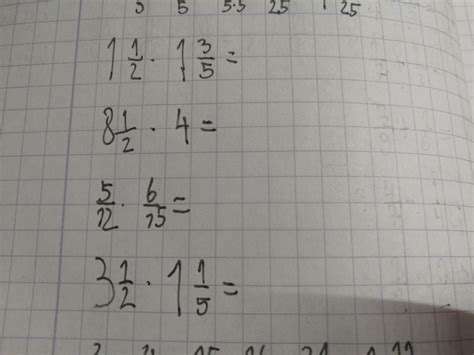 5 5 5·5 25 25
1 1/2 · 1 3/5 =
8 1/2 · 4 =
5/12 · 6/15 =
3 1/2 · 1 1/5 =